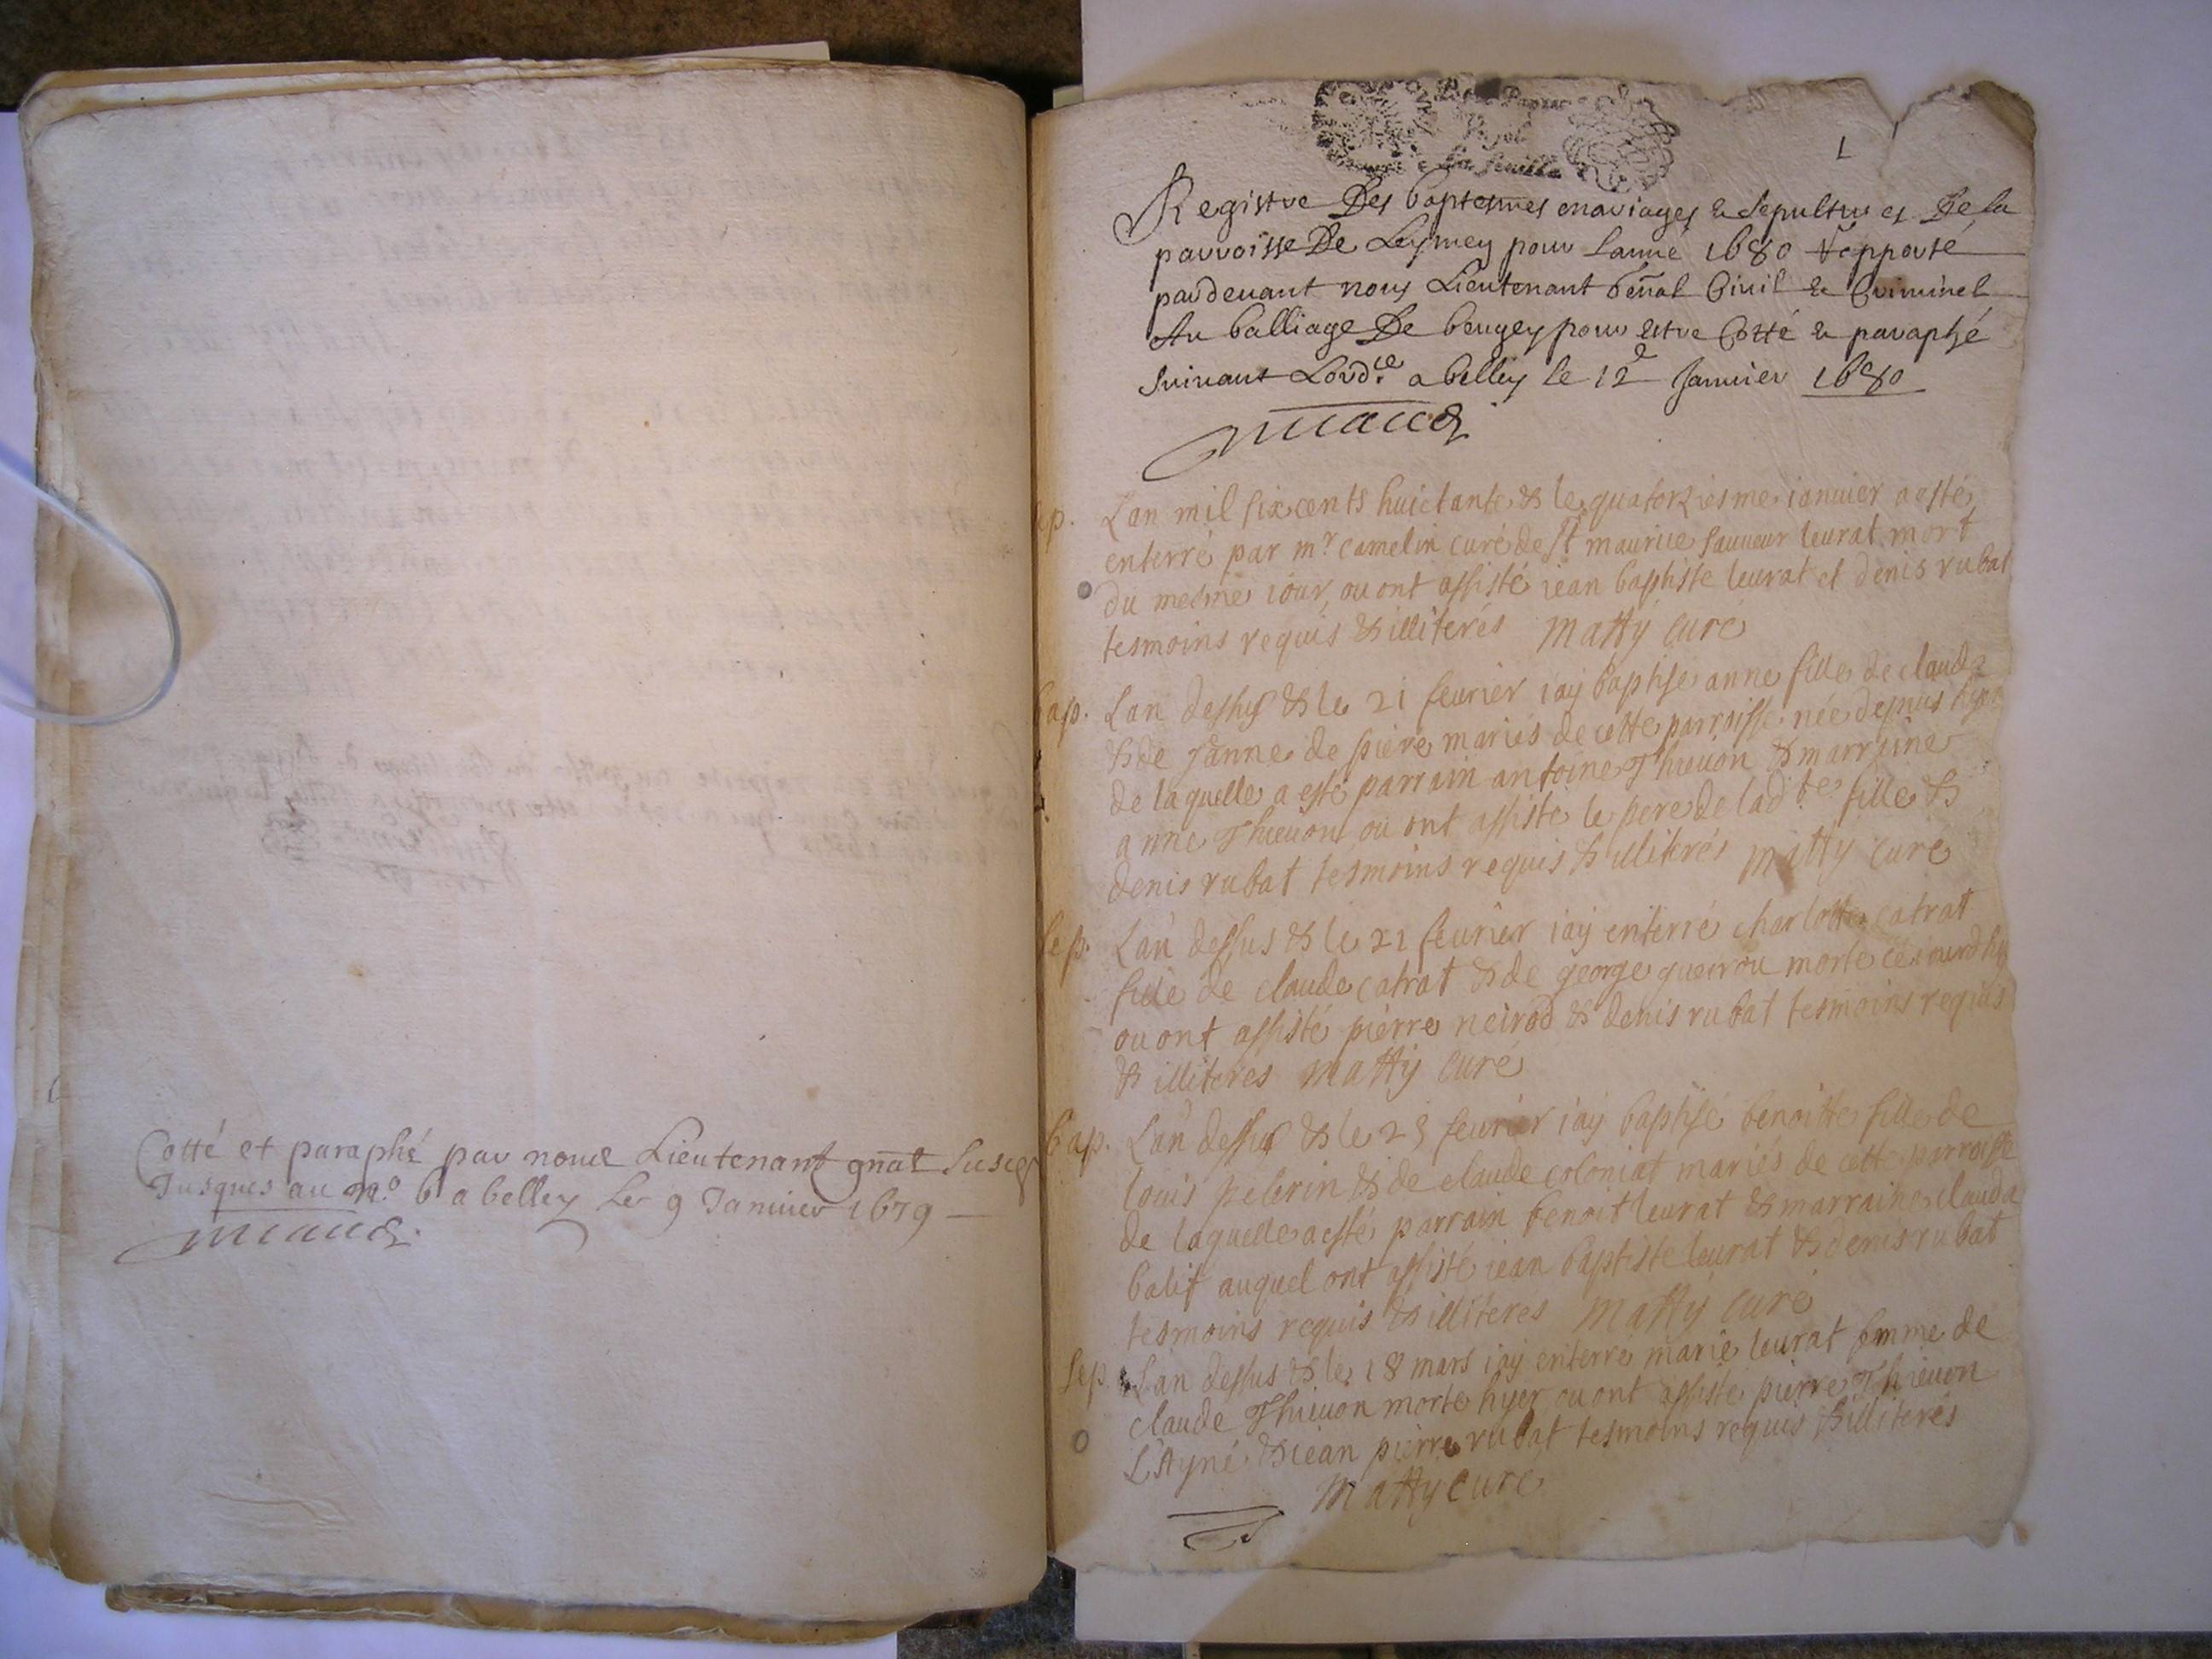 Cotté et paraphé par nous Lieutenant gnāl susd
Jusques au n.º 6 a belley Le 9 Januier 1679
La feuille
Registre Des baptesmes mariages & Sepultures De la
parroisse De Leymen pour lanné 1680 Rapporté
pardeuant nous Lieutenant Gēnal Ciuil & Criminel
Au balliage De beugey pour estre Cotté & paraphé
suiuant Lord.ce a belley le 12e Januier 1680
L'an mil six cents huictante & le quatorziesme ianuier a esté
enterré par mr camelin curé de st maurice sauueur leurat mort
du mesme iour, ou ont assisté iean baptiste leurat et denis rubat
tesmoins requis & illiterés matty curé
bap. L'an dessus & le 21 feurier iay baptisé anne fille de claude
& de Janne de piere mariés de cette parroisse née depuis hyer
de laquelle a esté parrain antoine Thieuon & marraine
anne Thieuon ou ont assisté le pere de lad.te fille &
denis rubat tesmoins requis & illiterés matty curé
sep. L'an dessus & le 21 feurier iay enterré charlotte catrat
fille de claude catrat & de george gueirou morte ce iourdhuy
ou ont assisté pierre neirod & denis rubat tesmoins requis
& illiteres matty curé
bap. L'an dessus & le 25 feurier iay baptisé benoitte fille de
louis pelerin & de claude coloniat mariés de cette parroisse
de laquelle a esté parrain benoit leurat & marraine clauda
balif auquel ont assisté iean baptiste leurat & denis rubat
tesmoins requis & illiteres matty curé
sep. L'an dessus & le 18 mars iay enterré marie leurat femme de
claude Thieuon morte hyer ou ont assisté pierre Thieuon
L'Ayné & iean pierre rubat tesmoins requis & illiterés
matty curé